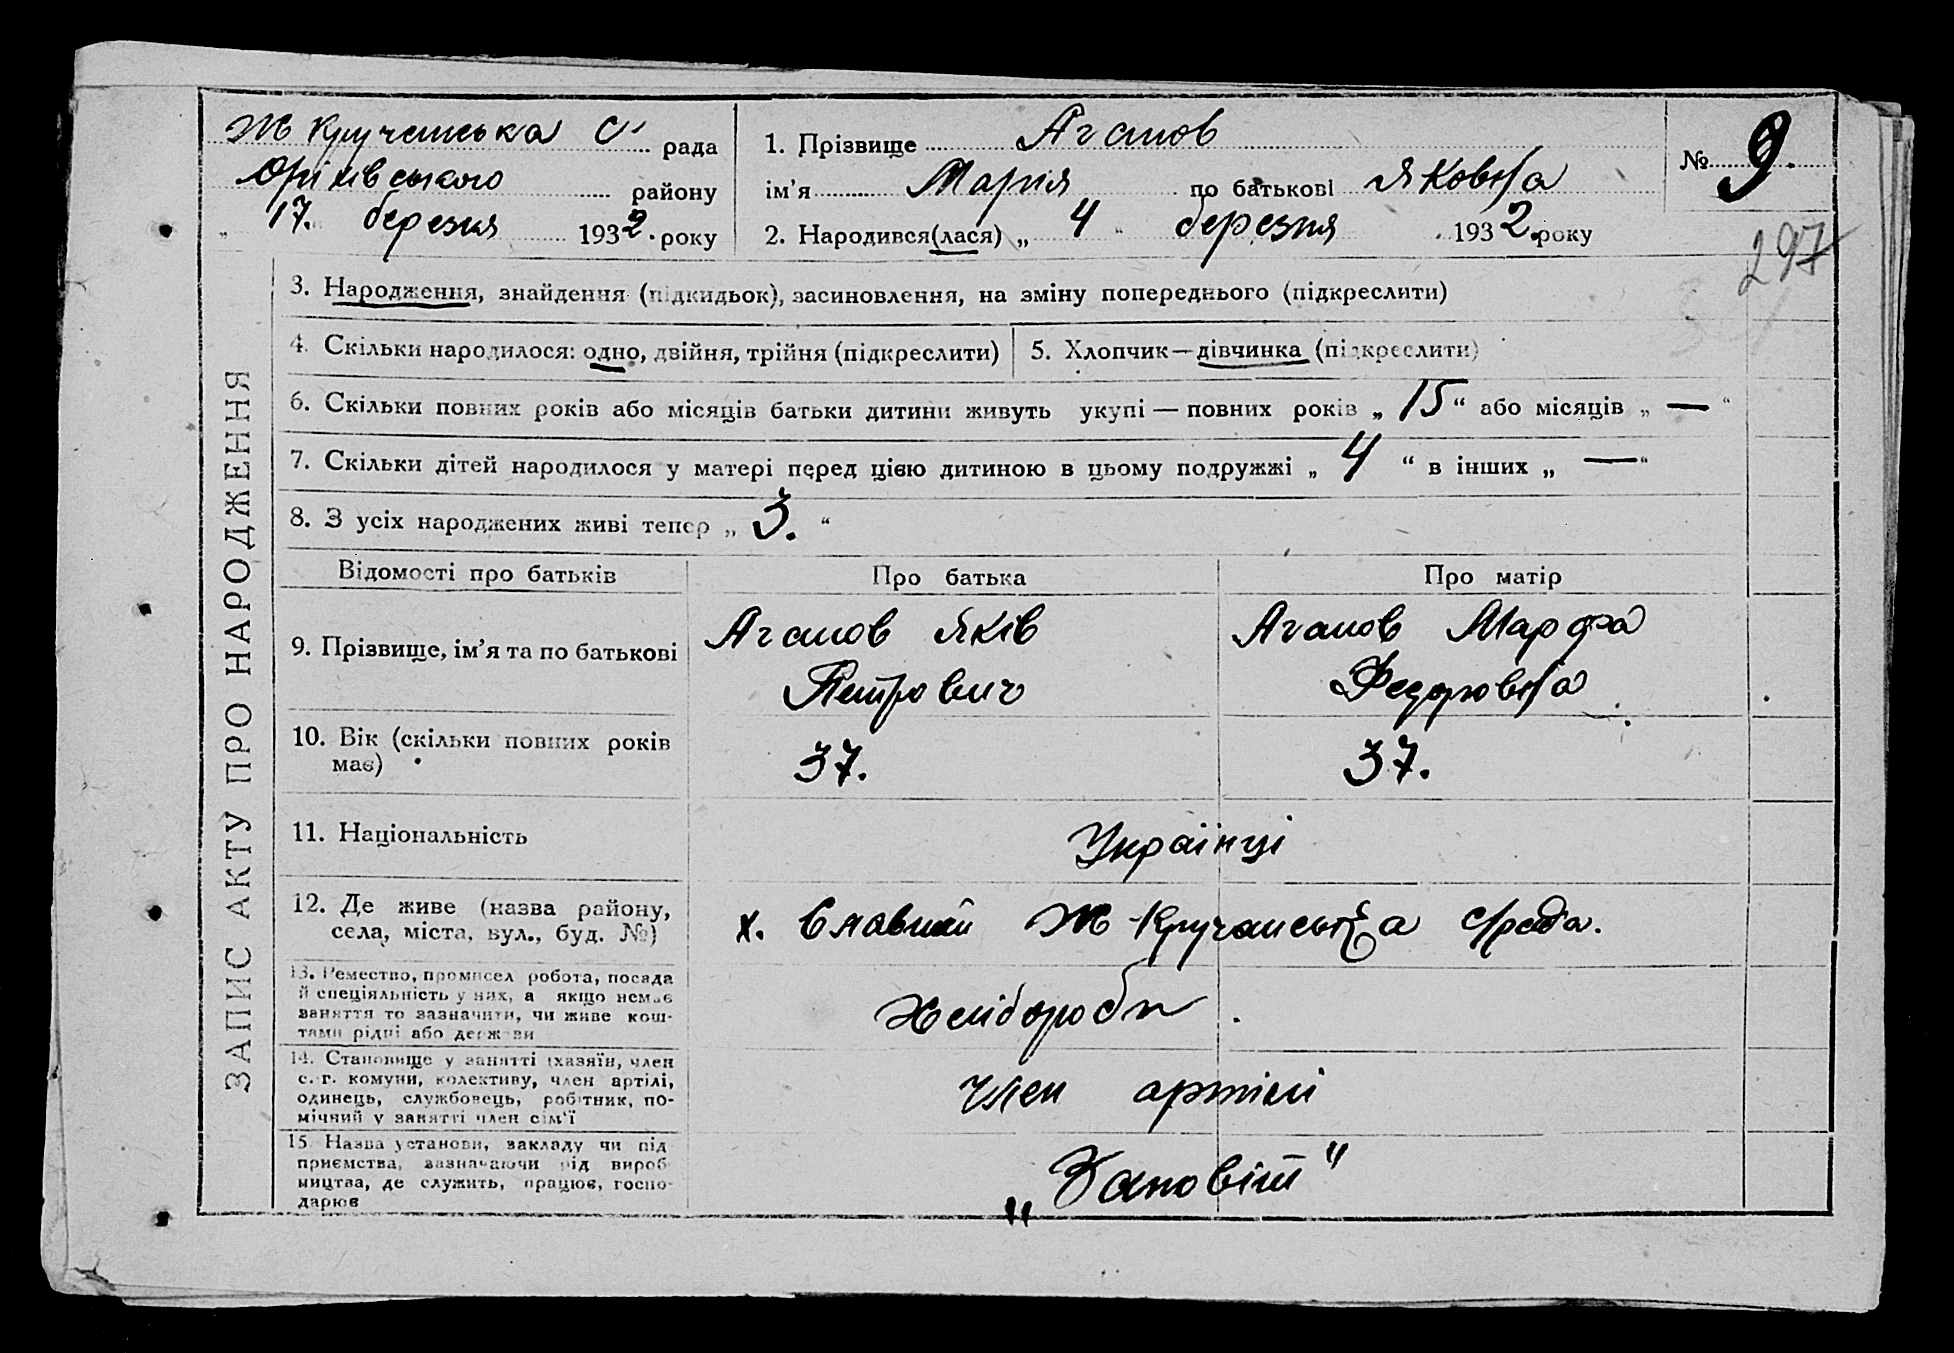 Ж Кручанська С рада
Оріхівського району
17. березня 1932. року
1. Прізвище Агапов
ім’я Марія по батькові Яковна
2. Народився(лася) „ 4 “ березня 1932. року
№ 9.
297
3. Народження, знайдення (підкидьок), засиновлення, на зміну попереднього (підкреслити)
4. Скільки народилося: одно, двійня, трійня (підкреслити) 5. Хлопчик—дівчинка (підкреслити)
6. Скільки повних років або місяців батьки дитини живуть укупі — повних років „ 15 “ або місяців „ — “
7. Скільки дітей народилося у матері перед цією дитиною в цьому подружжі „ 4 “ в інших „ — “
8. З усіх народжених живі тепер „ 3. “
ЗАПИС АКТУ ПРО НАРОДЖЕННЯ
Відомості про батьків Про батька Про матір
9. Прізвище, ім’я та по батькові
Агапов Яків
Петрович
Агапов Марфа
Федоровна
10. Вік (скільки повних років
має)
37. 37.
11. Національність Українці
12. Де живе (назва району,
села, міста, вул., буд. №)
х. Славний Ж-Кручанська с/рада.
13. Ремество, промисел робота, посада
й спеціяльність у них, а якщо немає
заняття то зазначити, чи живе кош-
тами рідні або держави
Хлібороби
14. Становище у занятті (хазяїн, член
с.-г. комуни, колективу, член артілі,
одинець, службовець, робітник, по-
мічний у занятті член сім’ї
член артілі
15. Назва установи, закладу чи під
приємства, зазначаючи рід вироб-
ництва, де служить, працює, госпо-
дарює
„Заповіт“